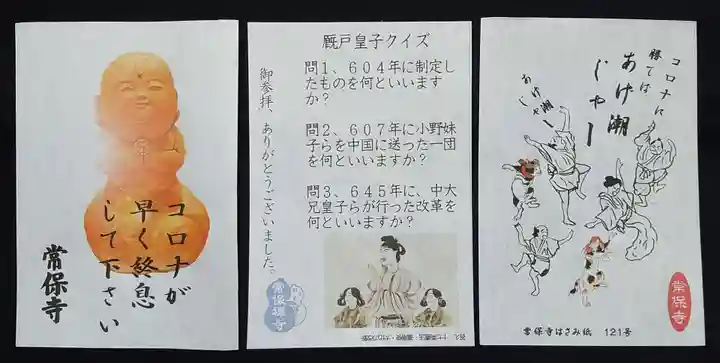 コロナが
早く終息
して下さい
常保寺
厩戸皇子クイズ
御参拝、ありがとうございました。
問1、604年に制定し
たものを何といいます
か?
問2、607年に小野妹
子らを中国に送った一団
を何といいますか?
問3、645年に、中大
兄皇子らが行った改革を
何といいますか?
常保禅寺
コロナに
勝てば
あげ潮
じゃー
あげ潮ー
じゃ
常保寺
常保寺はさみ紙 121号